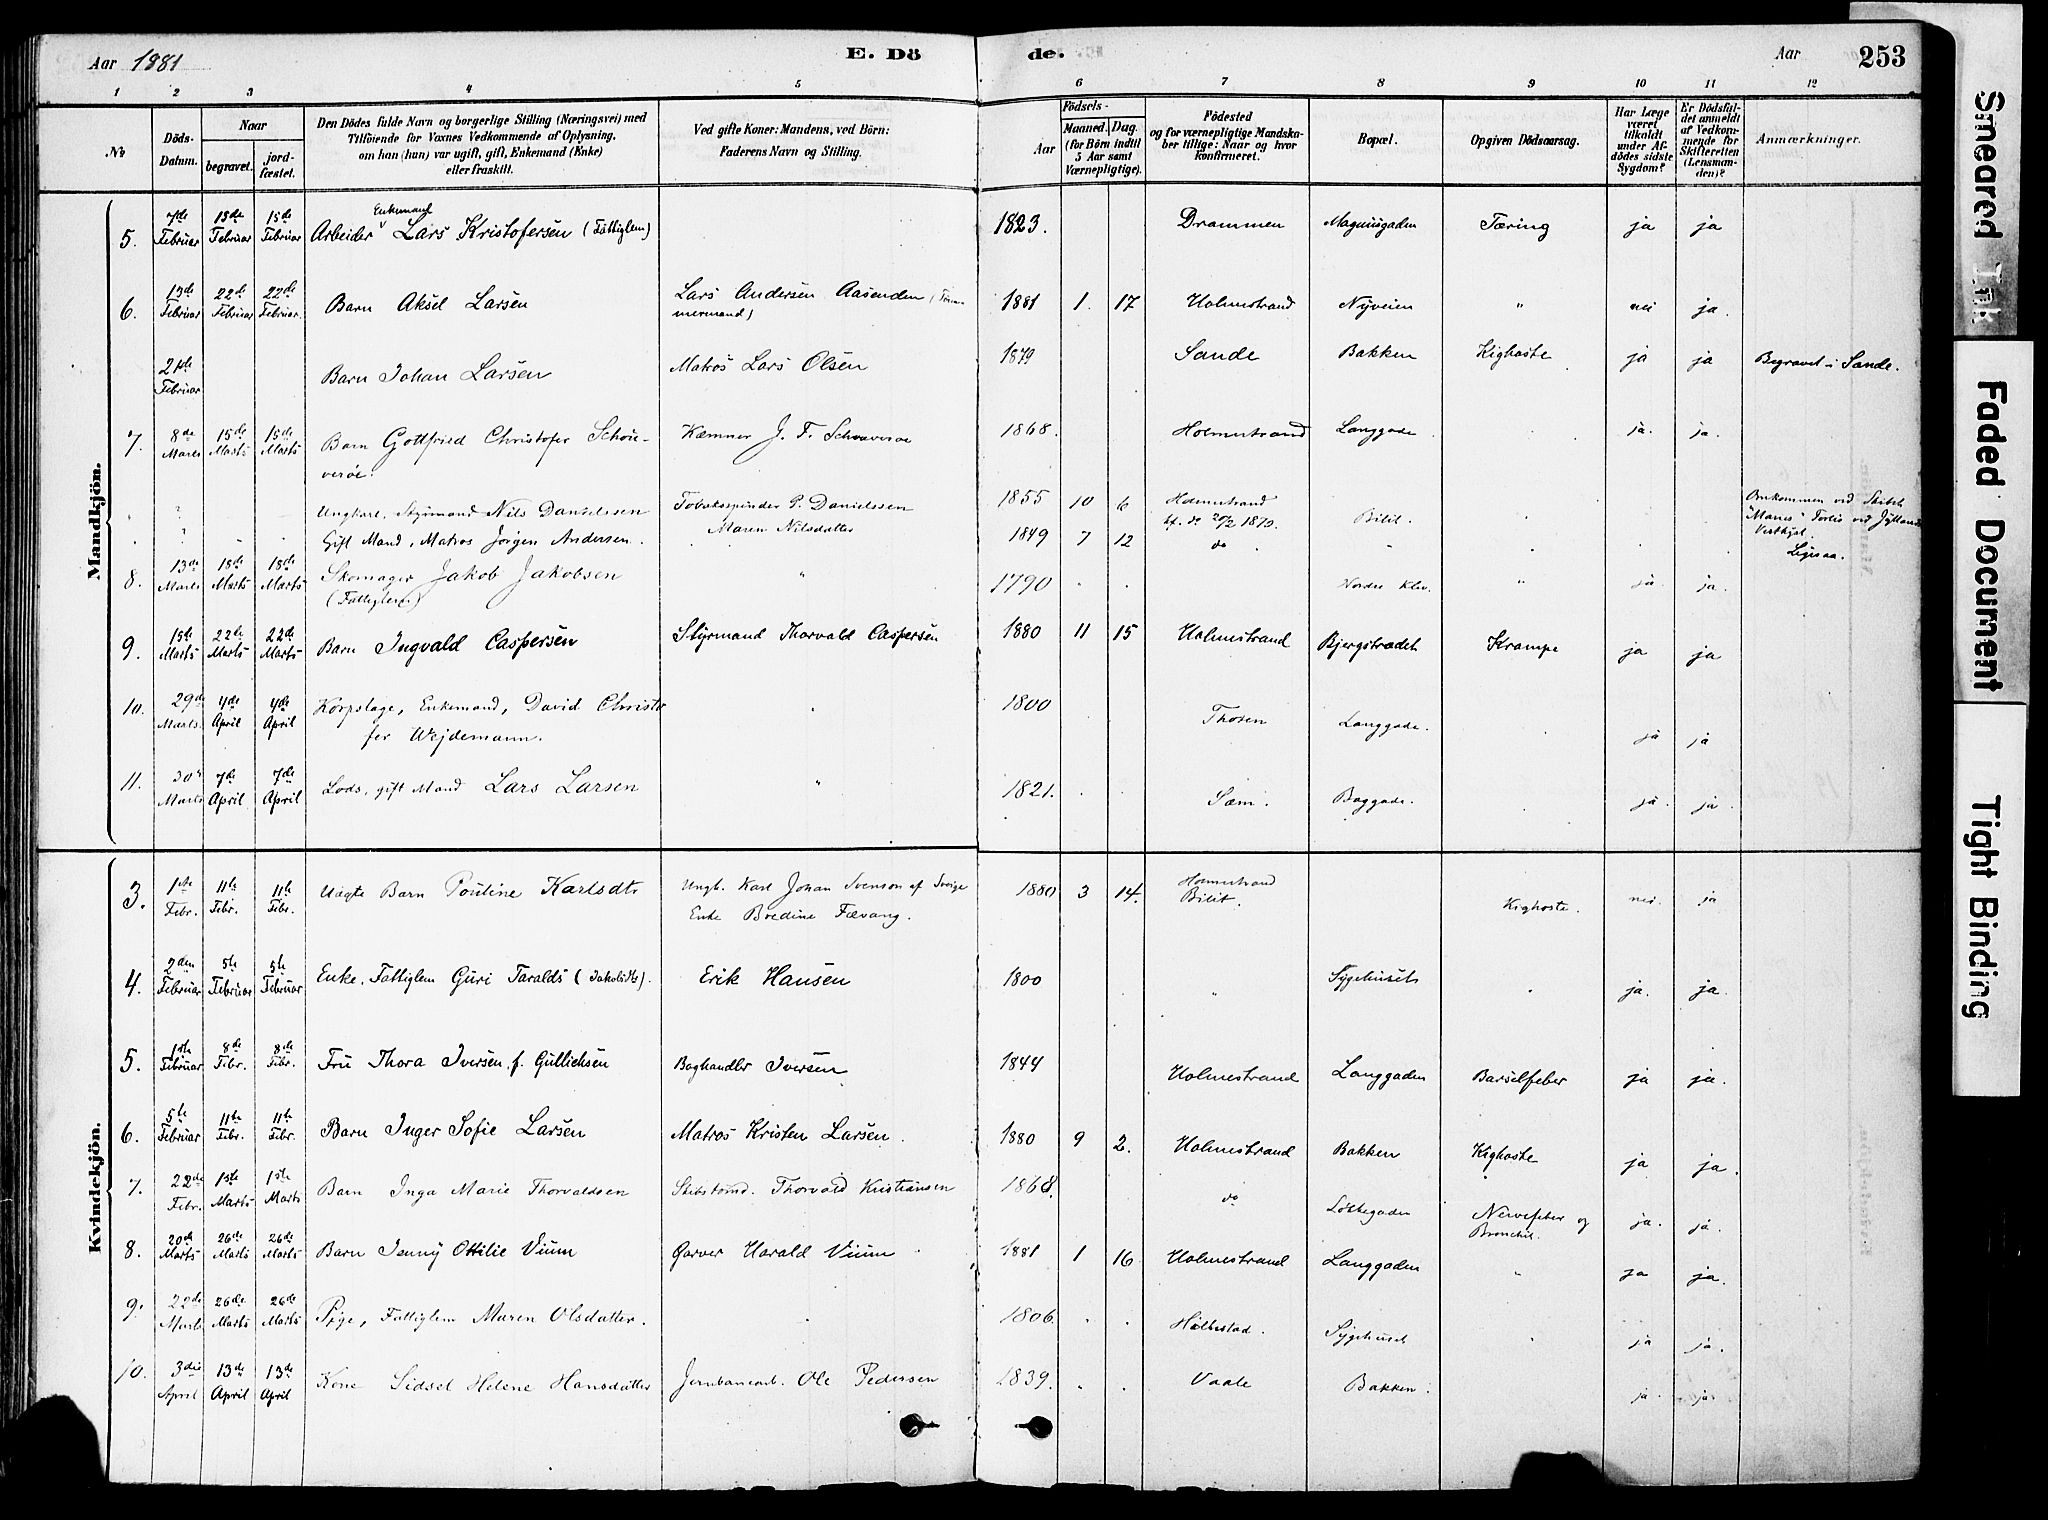 Aar 1881
E. Dö
de.
Aar
253
1 2 3 4 5 6 7 8 9 10 11 12
No
Döds-Datum.
Naar
begravet.
jord-fæstet.
Den Dödes fulde Navn og borgerlige Stilling (Næringsvei) med
Tilföiende for Voxnes Vedkommende af Oplysning,
om han (hun) var ugift, gift, Enkemand (Enke)
eller fraskilt.
Ved gifte Koner: Mandens, ved Börn:
Faderens Navn og Stilling.
Aar
Födsels-
Maaned. Dag.
(for Börn indtil
5 Aar samt
Værnepligtige).
Födested
og for værnepligtige Mandska-
ber tillige: Naar og hvor
konfirmeret.
Bopæl.
Opgiven Dödsaarsag.
Har Læge
været
tilkaldt
under Af-
dödes sidste
Sygdom?
Er Dödsfal-
det anmeldt
af Vedkom-
mende for
Skifteretten
(Lensman-
den)?
Anmærkninger.
Mandkjön.
5. 7de Februar 15de Februar 15de Februar Arbeider Enkemand Lars Kristofersen (Fattiglem) 1823. Drammen Magnusgaden Tæring ja ja
6. 13de Februar 22de Februar 22de Februar. Barn Aksel Larsen Lars Andersen Aasenden (Tømmermand) 1881 1. 17 Holmestrand Nyveien " nei ja.
21de Februar Barn Johan Larsen Matros Lars Olsen 1879 Sande Bakken Kighoste ja ja Begravet i Sande.
7. 8de Marts 15de Marts 15de Marts Barn Gottfried Christofer Schou-
verøe. Kæmner J. F. Schouverøe 1868. Holmestrand Langgade ja. ja.
" ? Ungkarl. Styrmand Nils Danielssen Tobaksspinder P. Danielssen
Maren Nilsdatter 1855 10 6 Holmestrand
kf. de 20/2 1870. Bilit. Omkommen ved Skibet
"Manes" Forlis ved Jyllands
Vestkyst.
" ? Gift Mand, Matros Jørgen Andersen. 1849 7 12 do Ligesaa.
8. 13de Marts 18de Marts 18de Marts Skomager Jakob Jakobsen
(Fattiglem) " 1790 Nordre Klev. " ja. ja.
9. 15de Marts 22de Marts 22de Marts Barn Ingvald Caspersen Styrmand Thorvald Caspersen 1880 11 15 Holmestrand Bjergstrædet Krampe ja ja
10. 29de Marts. 4de April 4de April Enkemand, David Christo
fer Wejdemann. 1800 Thoten Langgade. ja ja
11. 30te Marts 7de April 7de April Lods, gift Mand Lars Larsen " 1821. Sæm. Baggade. ja. ja.
Kvindekjön.
3. 1ste Febr. 11te Febr. 11te Febr. Uægte Barn Pouline Karlsdtr Ungk. Karl Johan Svenson af Sverige
Enke Bredine Fævang. 1880 3 14. Holmestrand
Bilit. Kighoste. nei. ja
4. 2den Februar 5te Februar 5te Februar Enke, Fattiglem Guri Taralds (Jakobsdtr). Erik Hansen 1800 " Sygehuset " ja. ja.
5. 1ste Februar 8de Febr. 8de Febr. Fru Thora Iversen, f. Gullichsen Boghandler Iversen 1844 Holmestrand Langgaden Barselfeber ja ja.
6. 5te Februar 11te Febr. 11te Febr. Barn Inger Sofie Larsen Matros Kristen Larsen. 1880 9 2. Holmestrand Bakken Kighoste ja ja.
7. 22de Febr. 1ste Marts 1ste Marts Barn Inga Marie Thorvaldsen Skibstømd. Thorvald Kristiansen 1868. do Løkkegaden Nervefeber og
Bronchit. ja. ja.
8. 20de Marts 26de Marts 26de Marts Barn Jenny Ottilie Vium Garver Harald Vium 1881 1 16 Holmestrand Langgaden " ja ja.
9. 22de Marts 26de Marts 26de Marts Pige, Fattiglem Maren Olsdatter. 1806. " " Hillestad. Sygehuset " ja ja.
10. 3die April 13de April 13de April Kone Sidsel Helene Hansdatter Jernbanearb. Ole Pedersen 1839. " Vaale Bakken. ja. ja.
Smeared Ink
Faded Document
Tight Binding